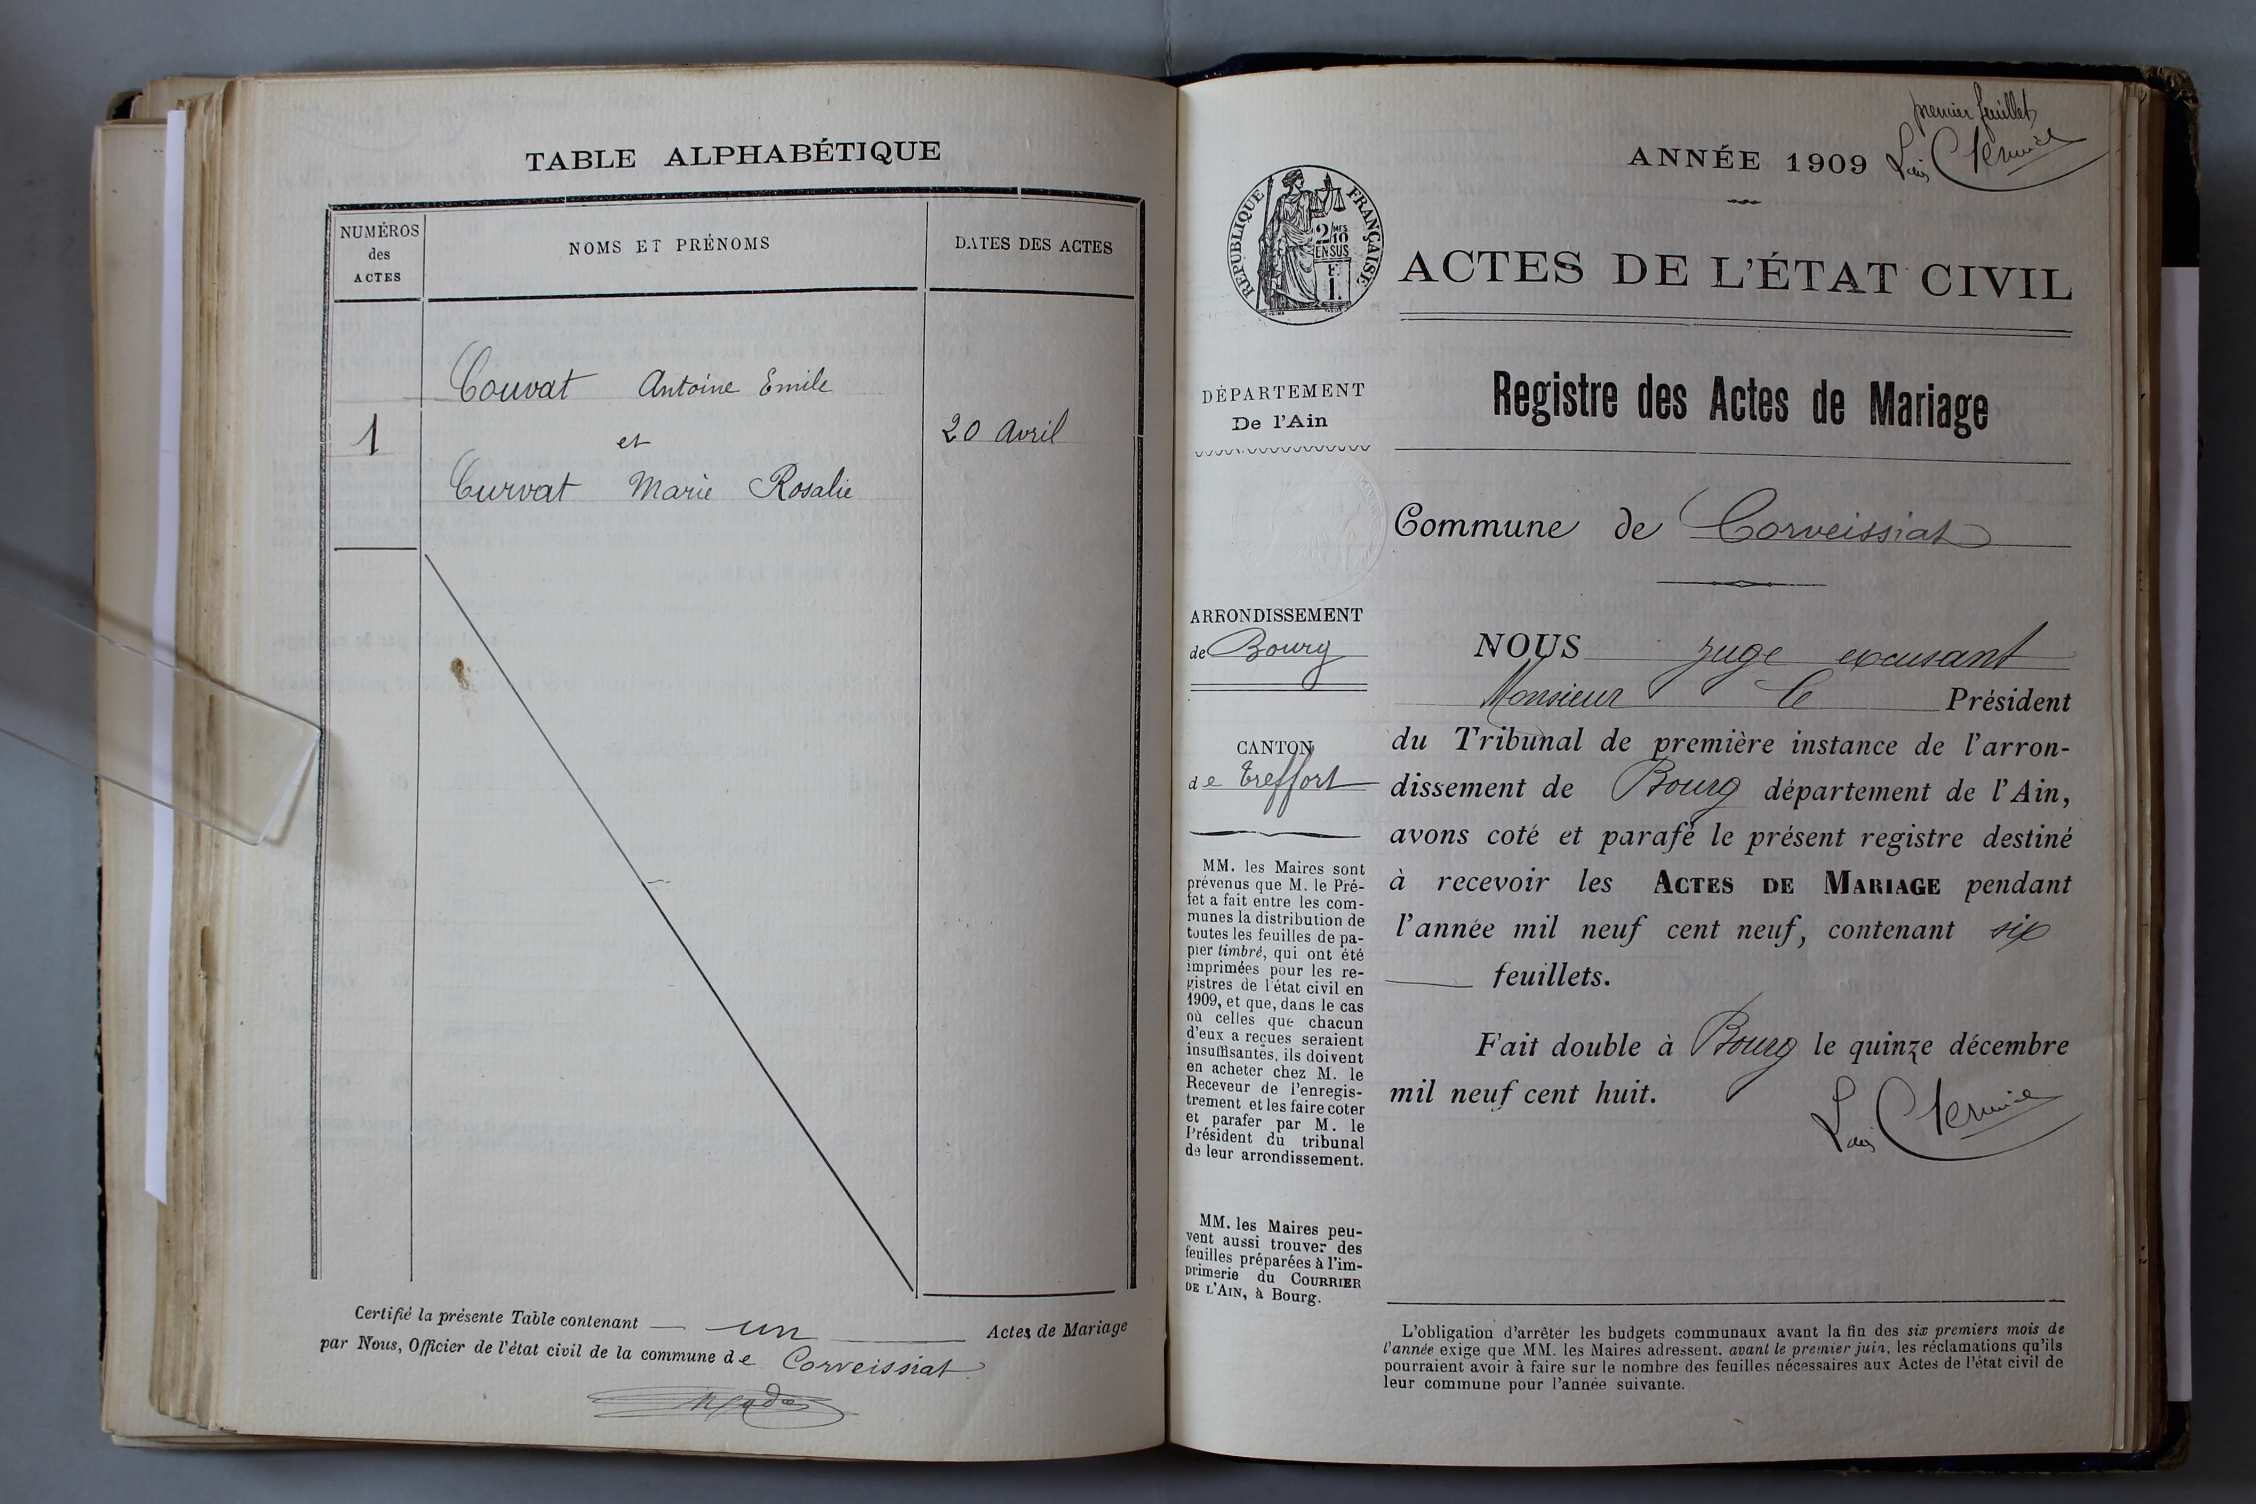 TABLE ALPHABÉTIQUE
NUMÉROS
des
ACTES
NOMS ET PRÉNOMS
DATES DES ACTES
Couvat Antoine Emile
1
et
20 Avril
Curvat Marie Rosalie
Certifié la présente Table contenant un Actes de Mariage
par Nous, Officier de l'état civil de la commune de Corveissiat
premier feuillet
ANNÉE 1909
RÉPUBLIQUE FRANÇAISE
2/10
EN SUS
ACTES DE L'ÉTAT CIVIL
DÉPARTEMENT
De l'Ain
Registre des Actes de Mariage
Commune de Corveissiat
ARRONDISSEMENT
de Bourg
CANTON
de Treffort
MM. les Maires sont
prévenus que M. le Pré-
fet a fait entre les com-
munes la distribution de
toutes les feuilles de pa-
pier timbré, qui ont été
imprimées pour les re-
gistres de l'état civil en
1909, et que, dans le cas
où celles que chacun
d'eux a reçues seraient
insuffisantes, ils doivent
en acheter chez M. le
Receveur de l'enregis-
trement et les faire coter
et parafer par M. le
Président du tribunal
de leur arrondissement.
MM. les Maires peu-
vent aussi trouver des
feuilles préparées à l'im-
primerie du COURRIER
DE L'AIN, à Bourg.
NOUS juge excusant
Monsieur le Président
du Tribunal de première instance de l'arron-
dissement de Bourg département de l'Ain,
avons coté et parafé le présent registre destiné
à recevoir les ACTES DE MARIAGE pendant
l'année mil neuf cent neuf, contenant six
feuillets.
Fait double à Bourg le quinze décembre
mil neuf cent huit.
L'obligation d'arrêter les budgets communaux avant la fin des six premiers mois de
l'année exige que MM. les Maires adressent, avant le premier juin, les réclamations qu'ils
pourraient avoir à faire sur le nombre des feuilles nécessaires aux Actes de l'état civil de
leur commune pour l'année suivante.